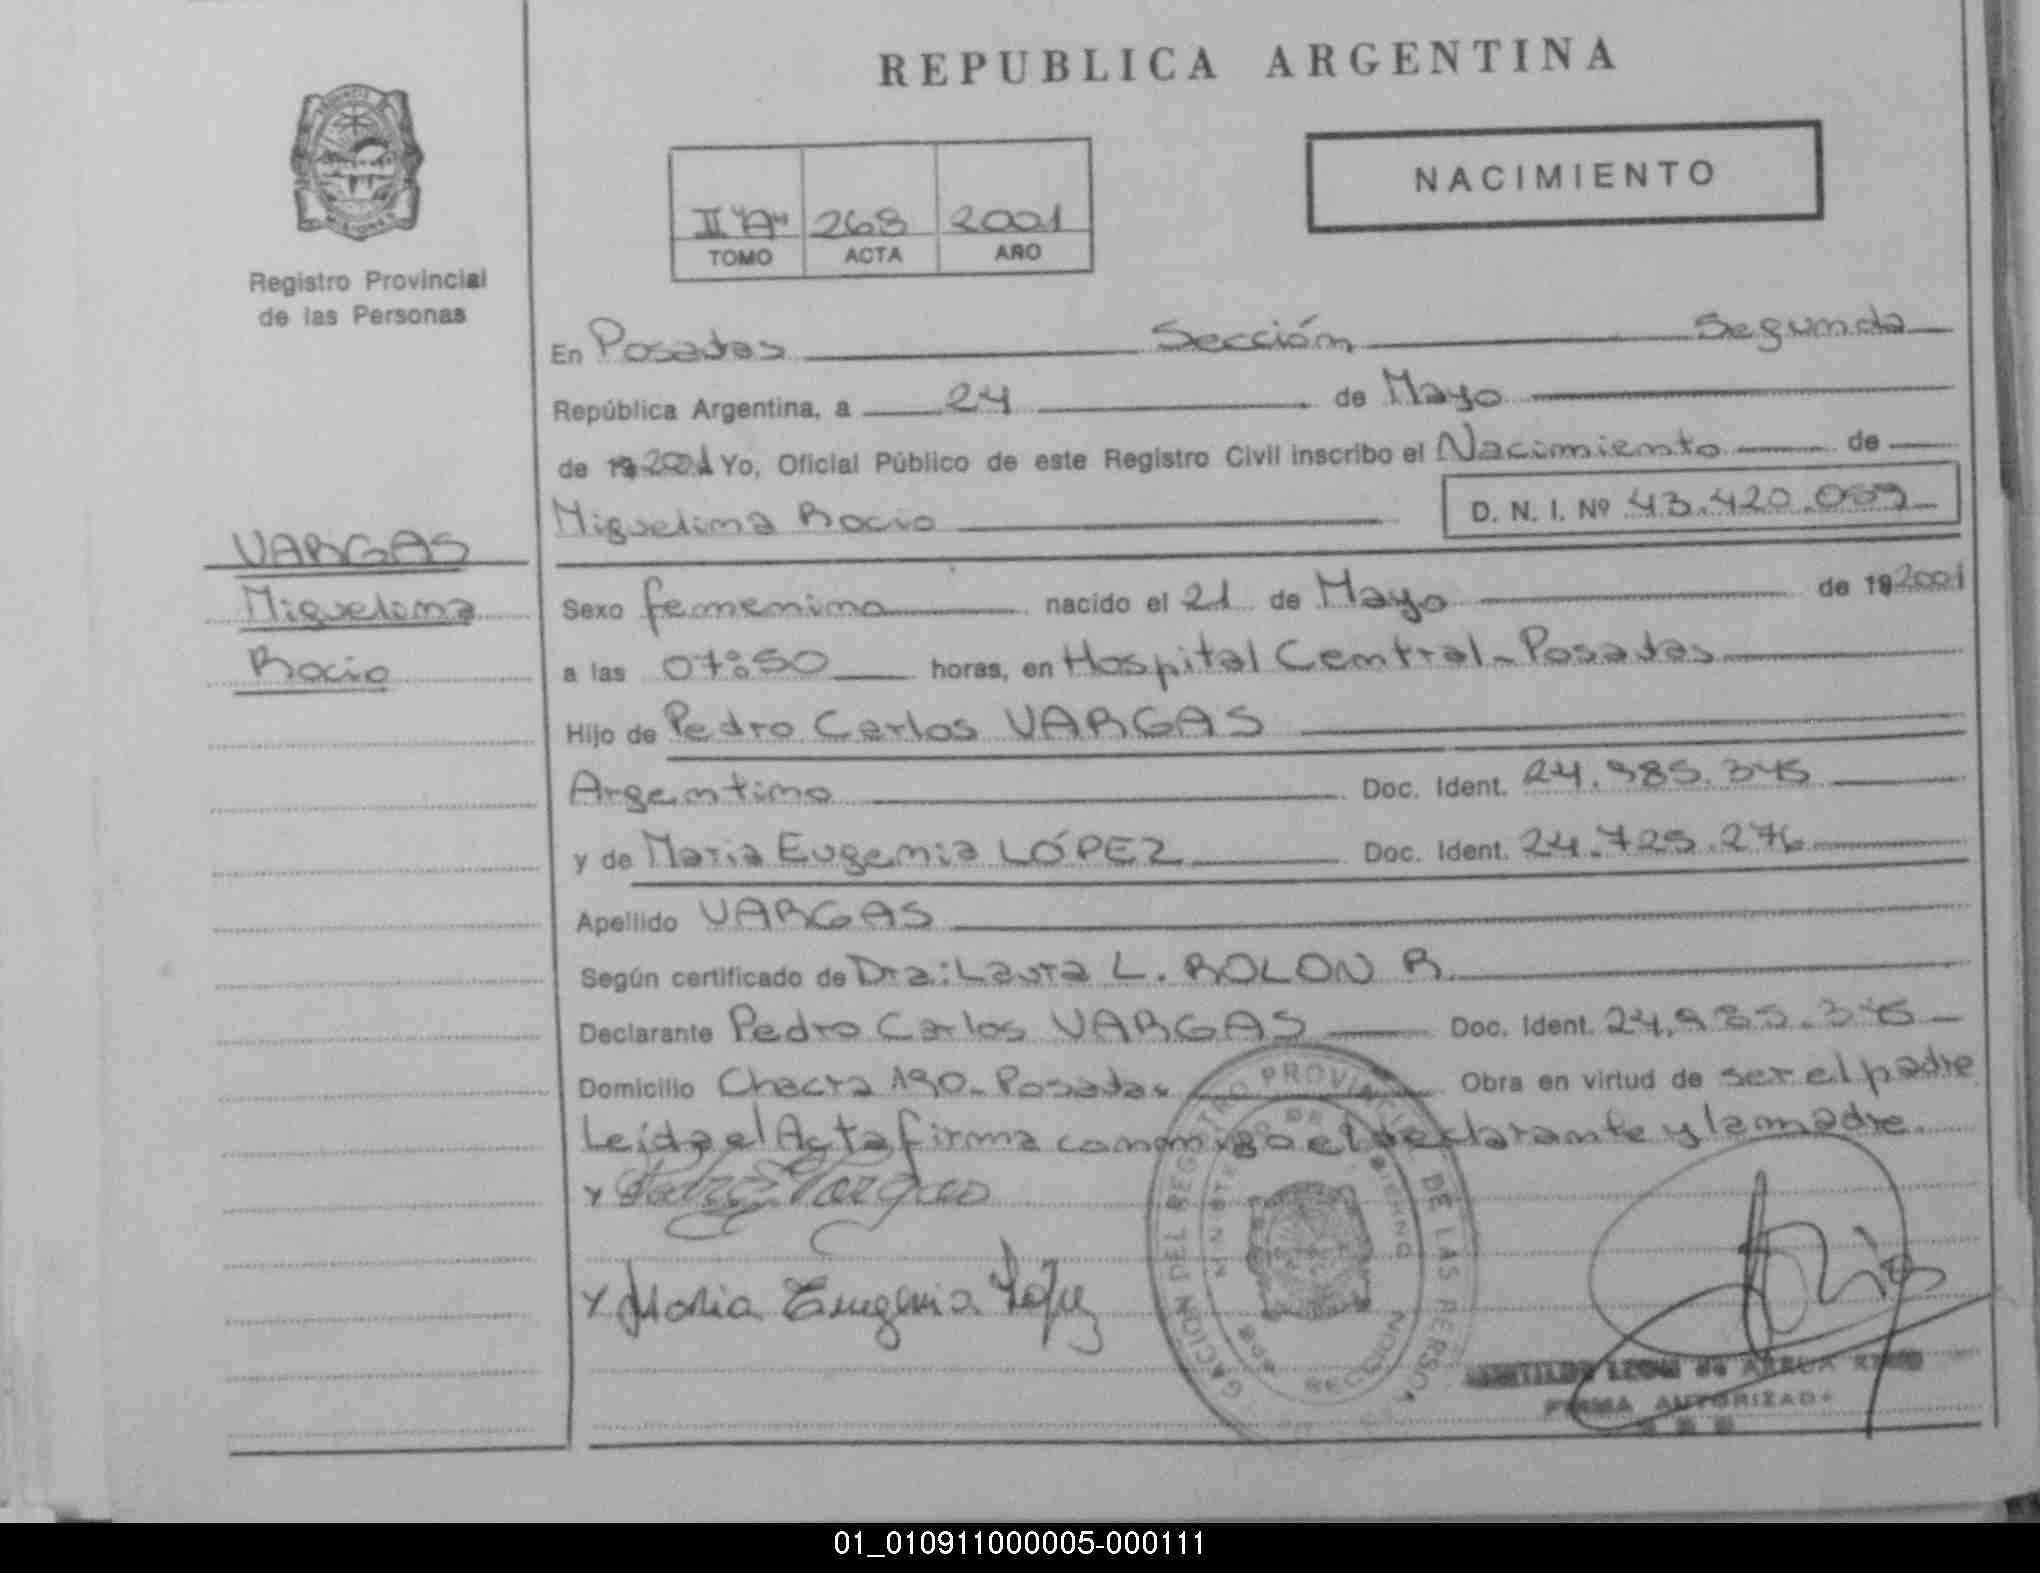 REPUBLICA ARGENTINA
NACIMIENTO
II "A" 268 2001
TOMO ACTA AÑO
Registro Provincial
de las Personas
En Posadas Sección Segunda
República Argentina, a 24 de Mayo
de 19 2001 Yo, Oficial Público de este Registro Civil inscribo el Nacimiento de
Miguelina Rocio D. N. I. Nº 43.420.059
VARGAS
Miguelina
Rocio
Sexo femenino nacido el 21 de Mayo de 19 2001
a las 07:50 horas, en Hospital Central - Posadas
Hijo de Pedro Carlos VARGAS
Argentino Doc. Ident. 24.985.345
y de Maria Eugenia LÓPEZ Doc. Ident. 24.725.276
Apellido VARGAS
Según certificado de Dra: Laura L. ROLON R.
Declarante Pedro Carlos VARGAS Doc. Ident. 24.985.345
Domicilio Chacra 190 - Posadas Obra en virtud de ser el padre
Leida el Acta firma conmigo el declarante y la madre.
x Vargas
x Maria Eugenia López
REGISTRO PROVINCIAL DE LAS PERSONAS
SECCION
LEON de ARRUA
FIRMA AUTORIZADA
01_010911000005-000111